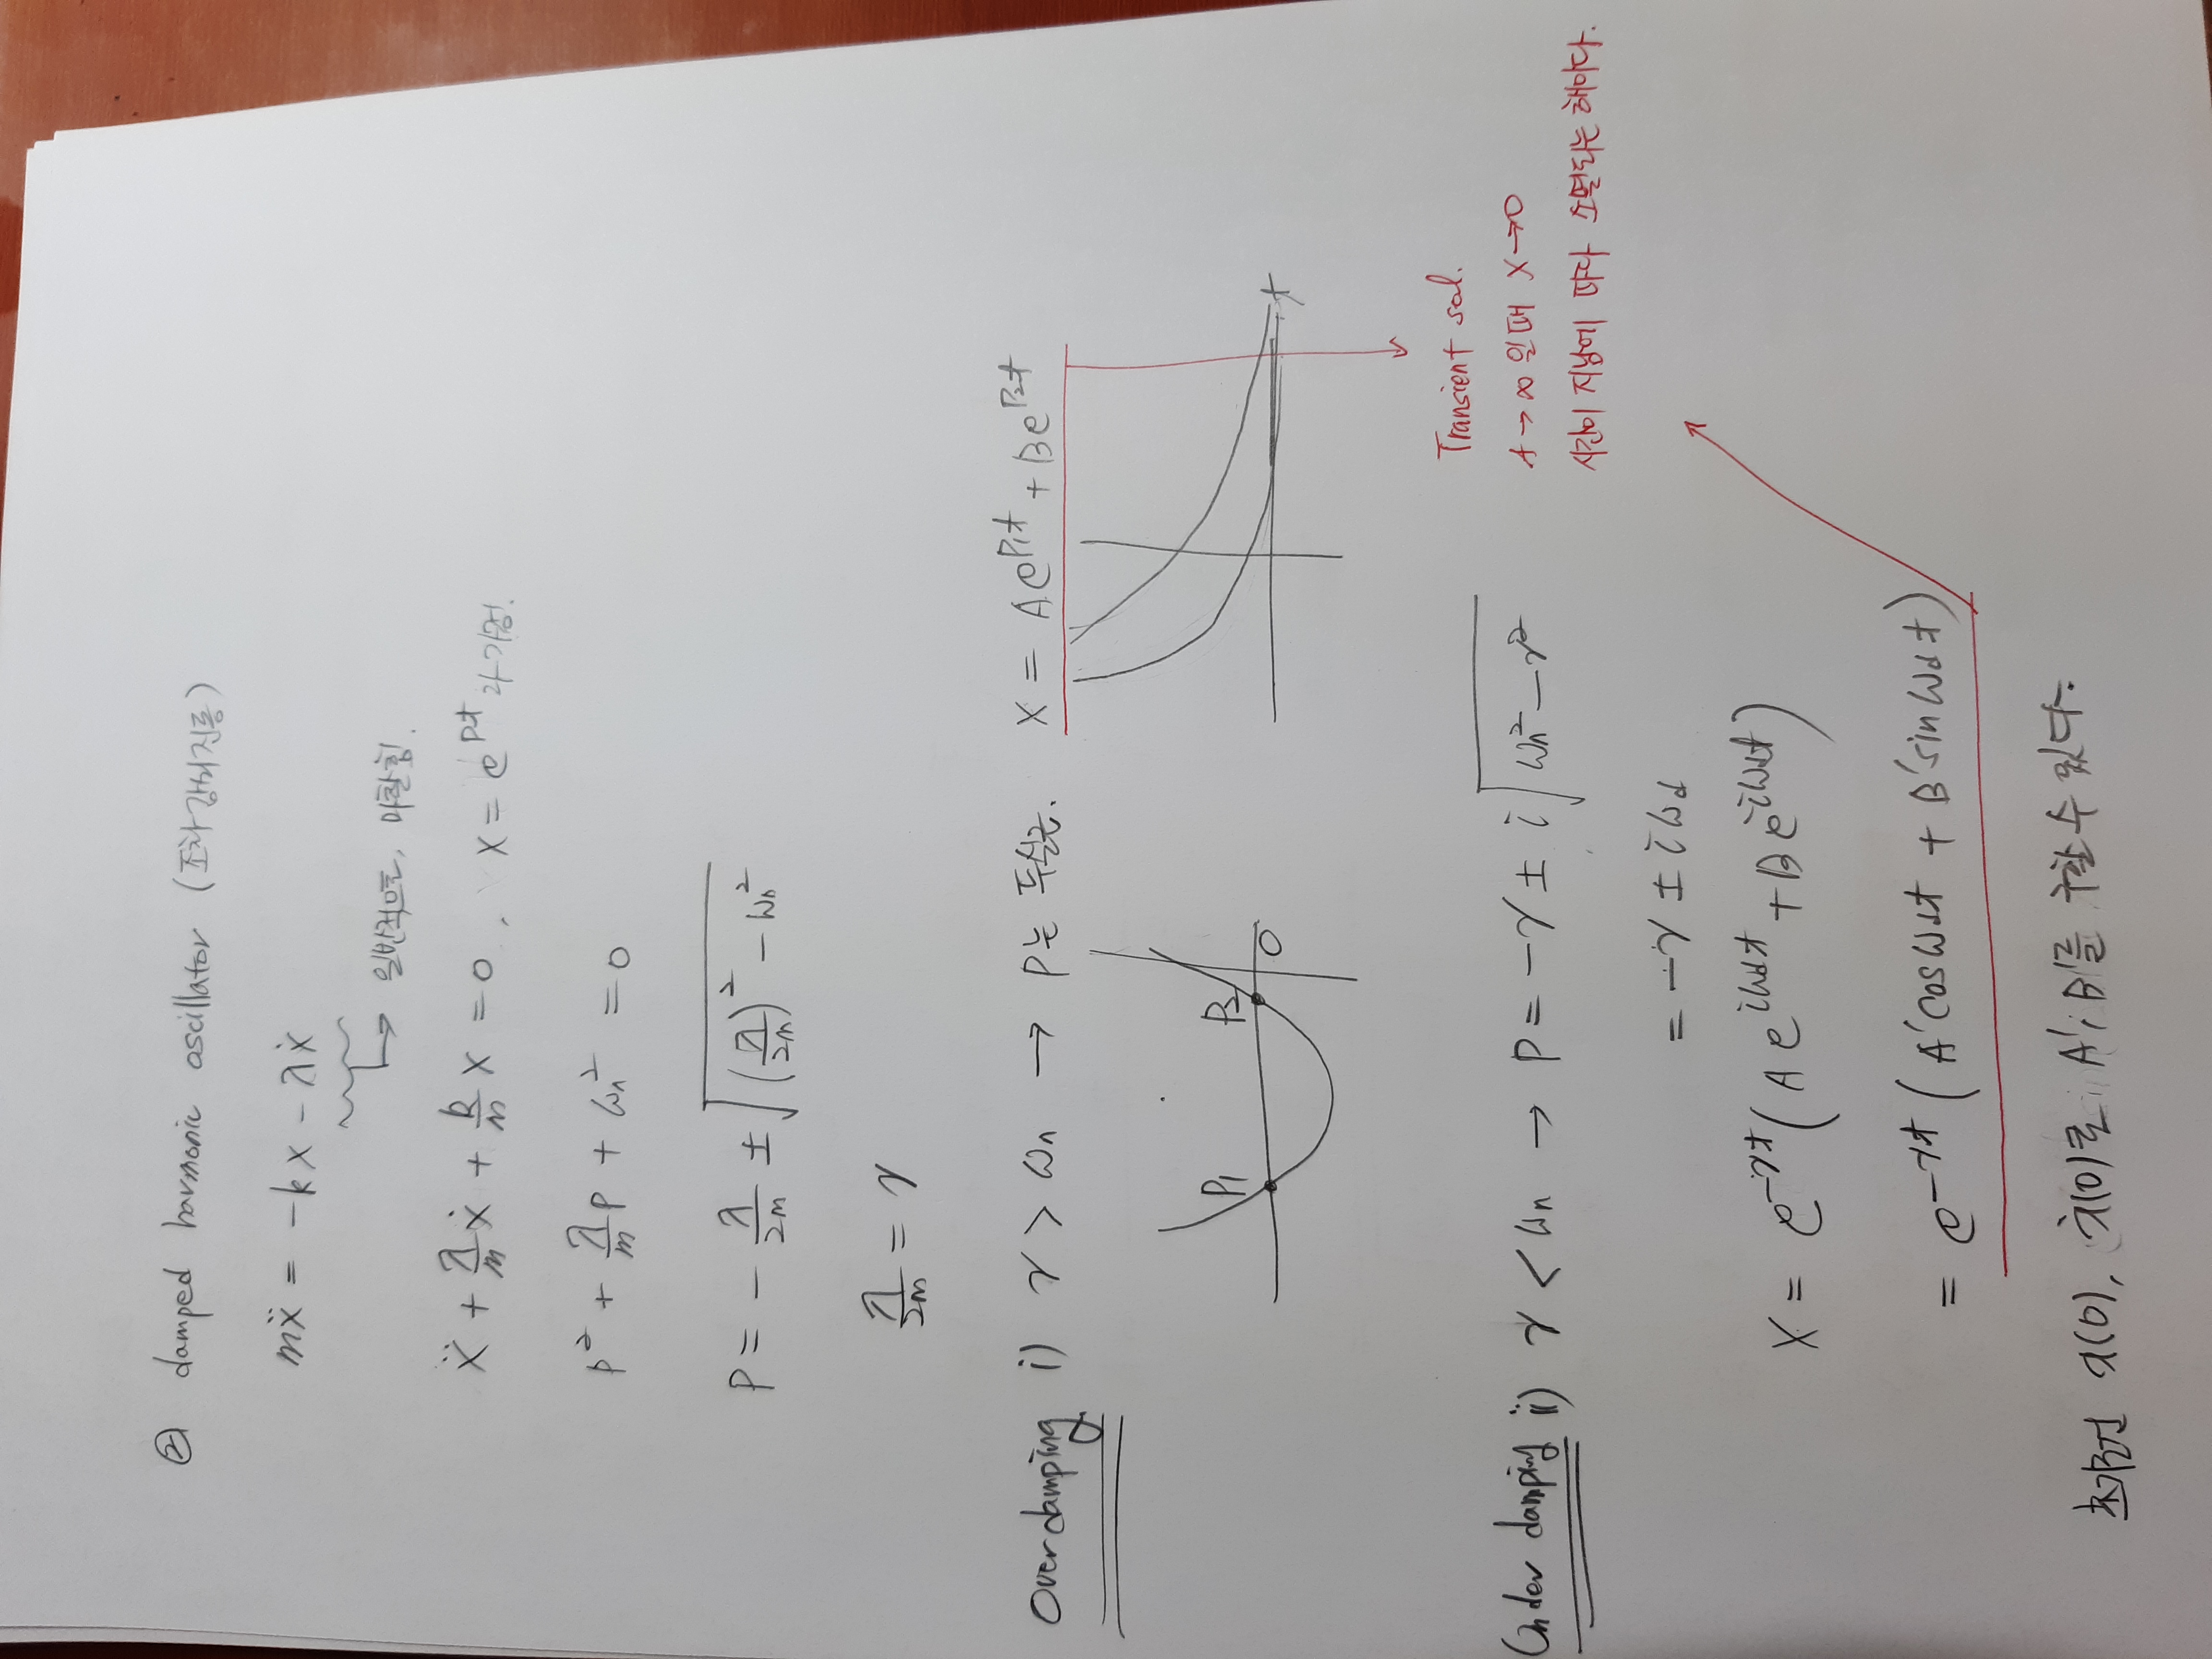 ② damped harmonic oscillator (조화감쇠진동)
mẍ = -kx - λẋ
→ 일반적으로, 마찰힘.
ẍ + λ/m ẋ + k/m x = 0, x = e^pt 라 가정.
p² + λ/m p + ωn² = 0
P = - λ/2m ± √((λ/2m)² - ωn²)
λ/2m = γ
Over damping i) γ > ωn → P는 두실근. x = Ae^P₁t + Be^P₂t
P₁ P₂ 0
t
Transient sol.
t → ∞ 일때 x → 0
시간이 지남에 따라 소멸되는 해이다.
Under damping ii) γ < ωn → P = -γ ± i√(ωn² - γ²)
= -γ ± iωd
x = e^-γt (Ae^iωdt + Be^iωdt)
= e^-γt (A'cosωdt + B'sinωdt)
초기조건 x(0), ẋ(0)로 A', B'를 구할 수 있다.